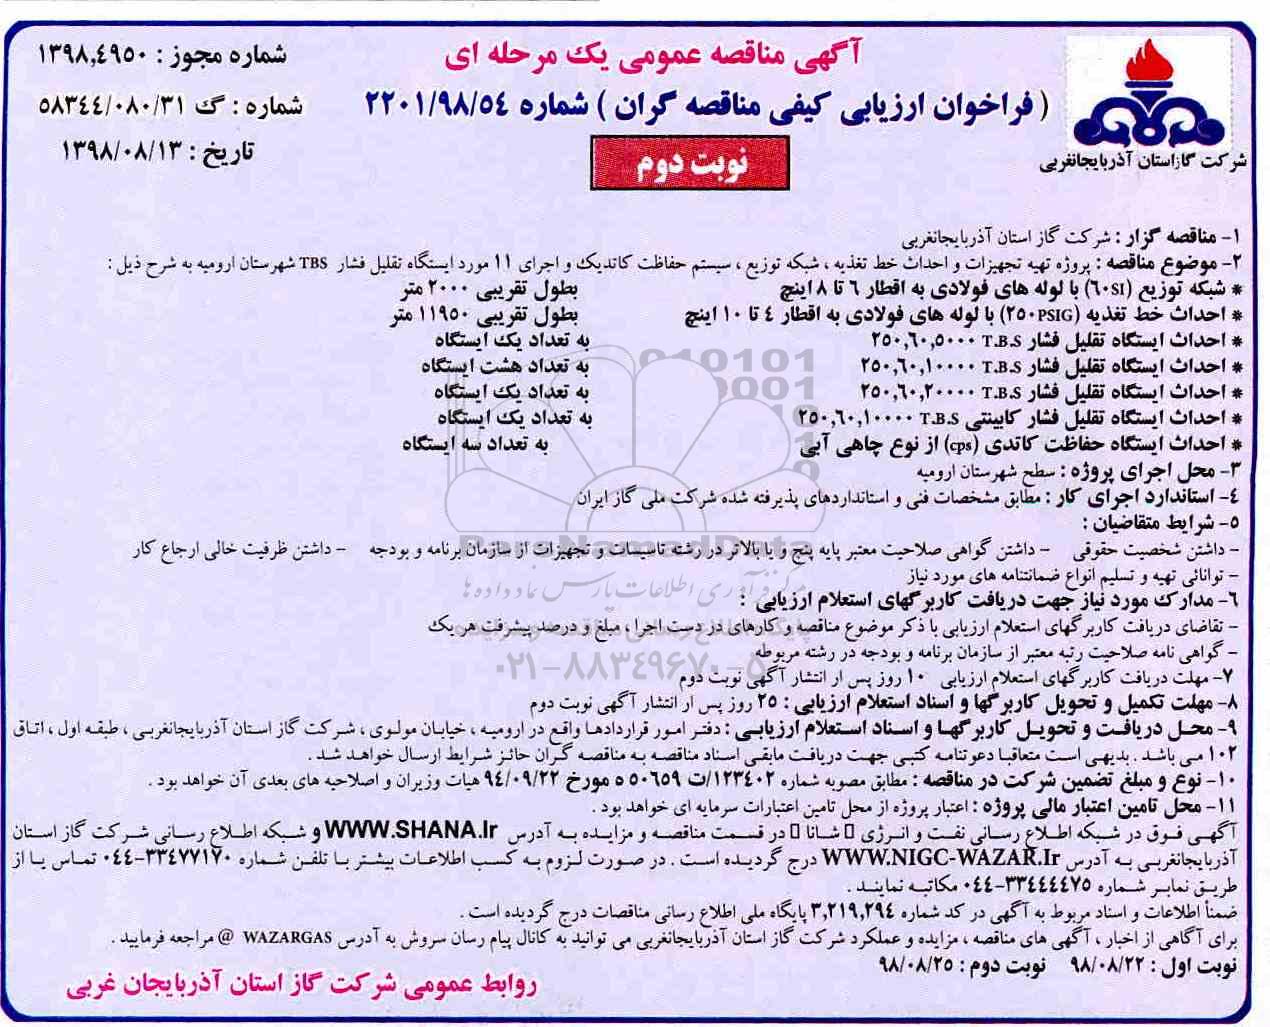 آگهی مناقصه عمومی یک مرحله ای
( فراخوان ارزیابی کیفی مناقصه گران ) شماره ۲۲۰۱/۹۸/۵۴
نوبت دوم
شماره مجوز : ۱۳۹۸,۴۹۵۰
شماره : گ ۵۸۳۴۴/۰۸۰/۳۱
تاریخ : ۱۳۹۸/۰۸/۱۳
شرکت گاز استان آذربایجانغربی
۱- مناقصه گزار : شرکت گاز استان آذربایجانغربی
۲- موضوع مناقصه : پروژه تهیه تجهیزات و احداث خط تغذیه ، شبکه توزیع ، سیستم حفاظت کاتدیک و اجرای ۱۱ مورد ایستگاه تقلیل فشار TBS شهرستان ارومیه به شرح ذیل :
* شبکه توزیع (۶۰SI) با لوله های فولادی به اقطار ۶ تا ۸ اینچ بطول تقریبی ۲۰۰۰ متر
* احداث خط تغذیه (۲۵۰PSIG) با لوله های فولادی به اقطار ۴ تا ۱۰ اینچ بطول تقریبی ۱۱۹۵۰ متر
* احداث ایستگاه تقلیل فشار T.B.S ۲۵۰,۶۰,۵۰۰۰ به تعداد یک ایستگاه
* احداث ایستگاه تقلیل فشار T.B.S ۲۵۰,۶۰,۱۰۰۰۰ به تعداد هشت ایستگاه
* احداث ایستگاه تقلیل فشار T.B.S ۲۵۰,۶۰,۲۰۰۰۰ به تعداد یک ایستگاه
* احداث ایستگاه تقلیل فشار کابینتی T.B.S ۲۵۰,۶۰,۱۰۰۰۰ به تعداد یک ایستگاه
* احداث ایستگاه حفاظت کاتدی (cps) از نوع چاهی آبی به تعداد سه ایستگاه
۳- محل اجرای پروژه : سطح شهرستان ارومیه
۴- استاندارد اجرای کار : مطابق مشخصات فنی و استانداردهای پذیرفته شده شرکت ملی گاز ایران
۵- شرایط متقاضیان :
- داشتن شخصیت حقوقی - داشتن گواهی صلاحیت معتبر پایه پنج و یا بالاتر در رشته تاسیسات و تجهیزات از سازمان برنامه و بودجه - داشتن ظرفیت خالی ارجاع کار
- توانائی تهیه و تسلیم انواع ضمانتنامه های مورد نیاز
۶- مدارک مورد نیاز جهت دریافت کاربرگهای استعلام ارزیابی :
- تقاضای دریافت کاربرگهای استعلام ارزیابی با ذکر موضوع مناقصه و کارهای در دست اجرا ، مبلغ و درصد پیشرفت هر یک
- گواهی نامه صلاحیت رتبه معتبر از سازمان برنامه و بودجه در رشته مربوطه
۷- مهلت دریافت کاربرگهای استعلام ارزیابی ۱۰ روز پس از انتشار آگهی نوبت دوم
۸- مهلت تکمیل و تحویل کاربرگها و اسناد استعلام ارزیابی : ۲۵ روز پس از انتشار آگهی نوبت دوم
۹- محل دریافت و تحویل کاربرگها و اسناد استعلام ارزیابی : دفتر امور قراردادها واقع در ارومیه ، خیابان مولوی ، شرکت گاز استان آذربایجانغربی ، طبقه اول ، اتاق
۱۰۲ می باشد . بدیهی است متعاقبا دعوتنامه کتبی جهت دریافت مابقی اسناد مناقصه به مناقصه گران حائز شرایط ارسال خواهد شد .
۱۰- نوع و مبلغ تضمین شرکت در مناقصه : مطابق مصوبه شماره ۱۲۳۴۰۲/ت ۵۰۶۵۹ ه مورخ ۹۴/۰۹/۲۲ هیات وزیران و اصلاحیه های بعدی آن خواهد بود .
۱۱- محل تامین اعتبار مالی پروژه : اعتبار پروژه از محل تامین اعتبارات سرمایه ای خواهد بود .
آگهی فوق در شبکه اطلاع رسانی نفت و انرژی ▯ شانا ▯ در قسمت مناقصه و مزایده به آدرس WWW.SHANA.Ir و شبکه اطلاع رسانی شرکت گاز استان
آذربایجانغربی به آدرس WWW.NIGC-WAZAR.Ir درج گردیده است . در صورت لزوم به کسب اطلاعات بیشتر با تلفن شماره ۳۳۴۷۷۱۷۰-۰۴۴ تماس یا از
طریق نمابر شماره ۳۳۴۴۴۴۷۵-۰۴۴ مکاتبه نمایند .
ضمناً اطلاعات و اسناد مربوط به آگهی در کد شماره ۳,۲۱۹,۲۹۴ پایگاه ملی اطلاع رسانی مناقصات درج گردیده است .
برای آگاهی از اخبار ، آگهی های مناقصه ، مزایده و عملکرد شرکت گاز استان آذربایجانغربی می توانید به کانال پیام رسان سروش به آدرس WAZARGAS @ مراجعه فرمایید .
نوبت اول : ۹۸/۰۸/۲۲ نوبت دوم : ۹۸/۰۸/۲۵
روابط عمومی شرکت گاز استان آذربایجان غربی
ParsNamadData
مرکز فرآوری اطلاعات پارس نماد داده ها
۰۲۱-۸۸۳۴۹۶۷۰-۵